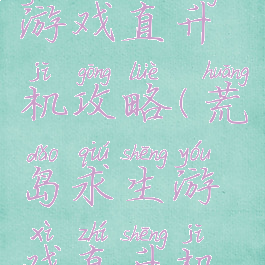 游戏直升
jī gōng lüè huāng
机攻略(荒
dǎo qiú shēng yóu
岛求生游
xì zhí shēng jī
戏直升机